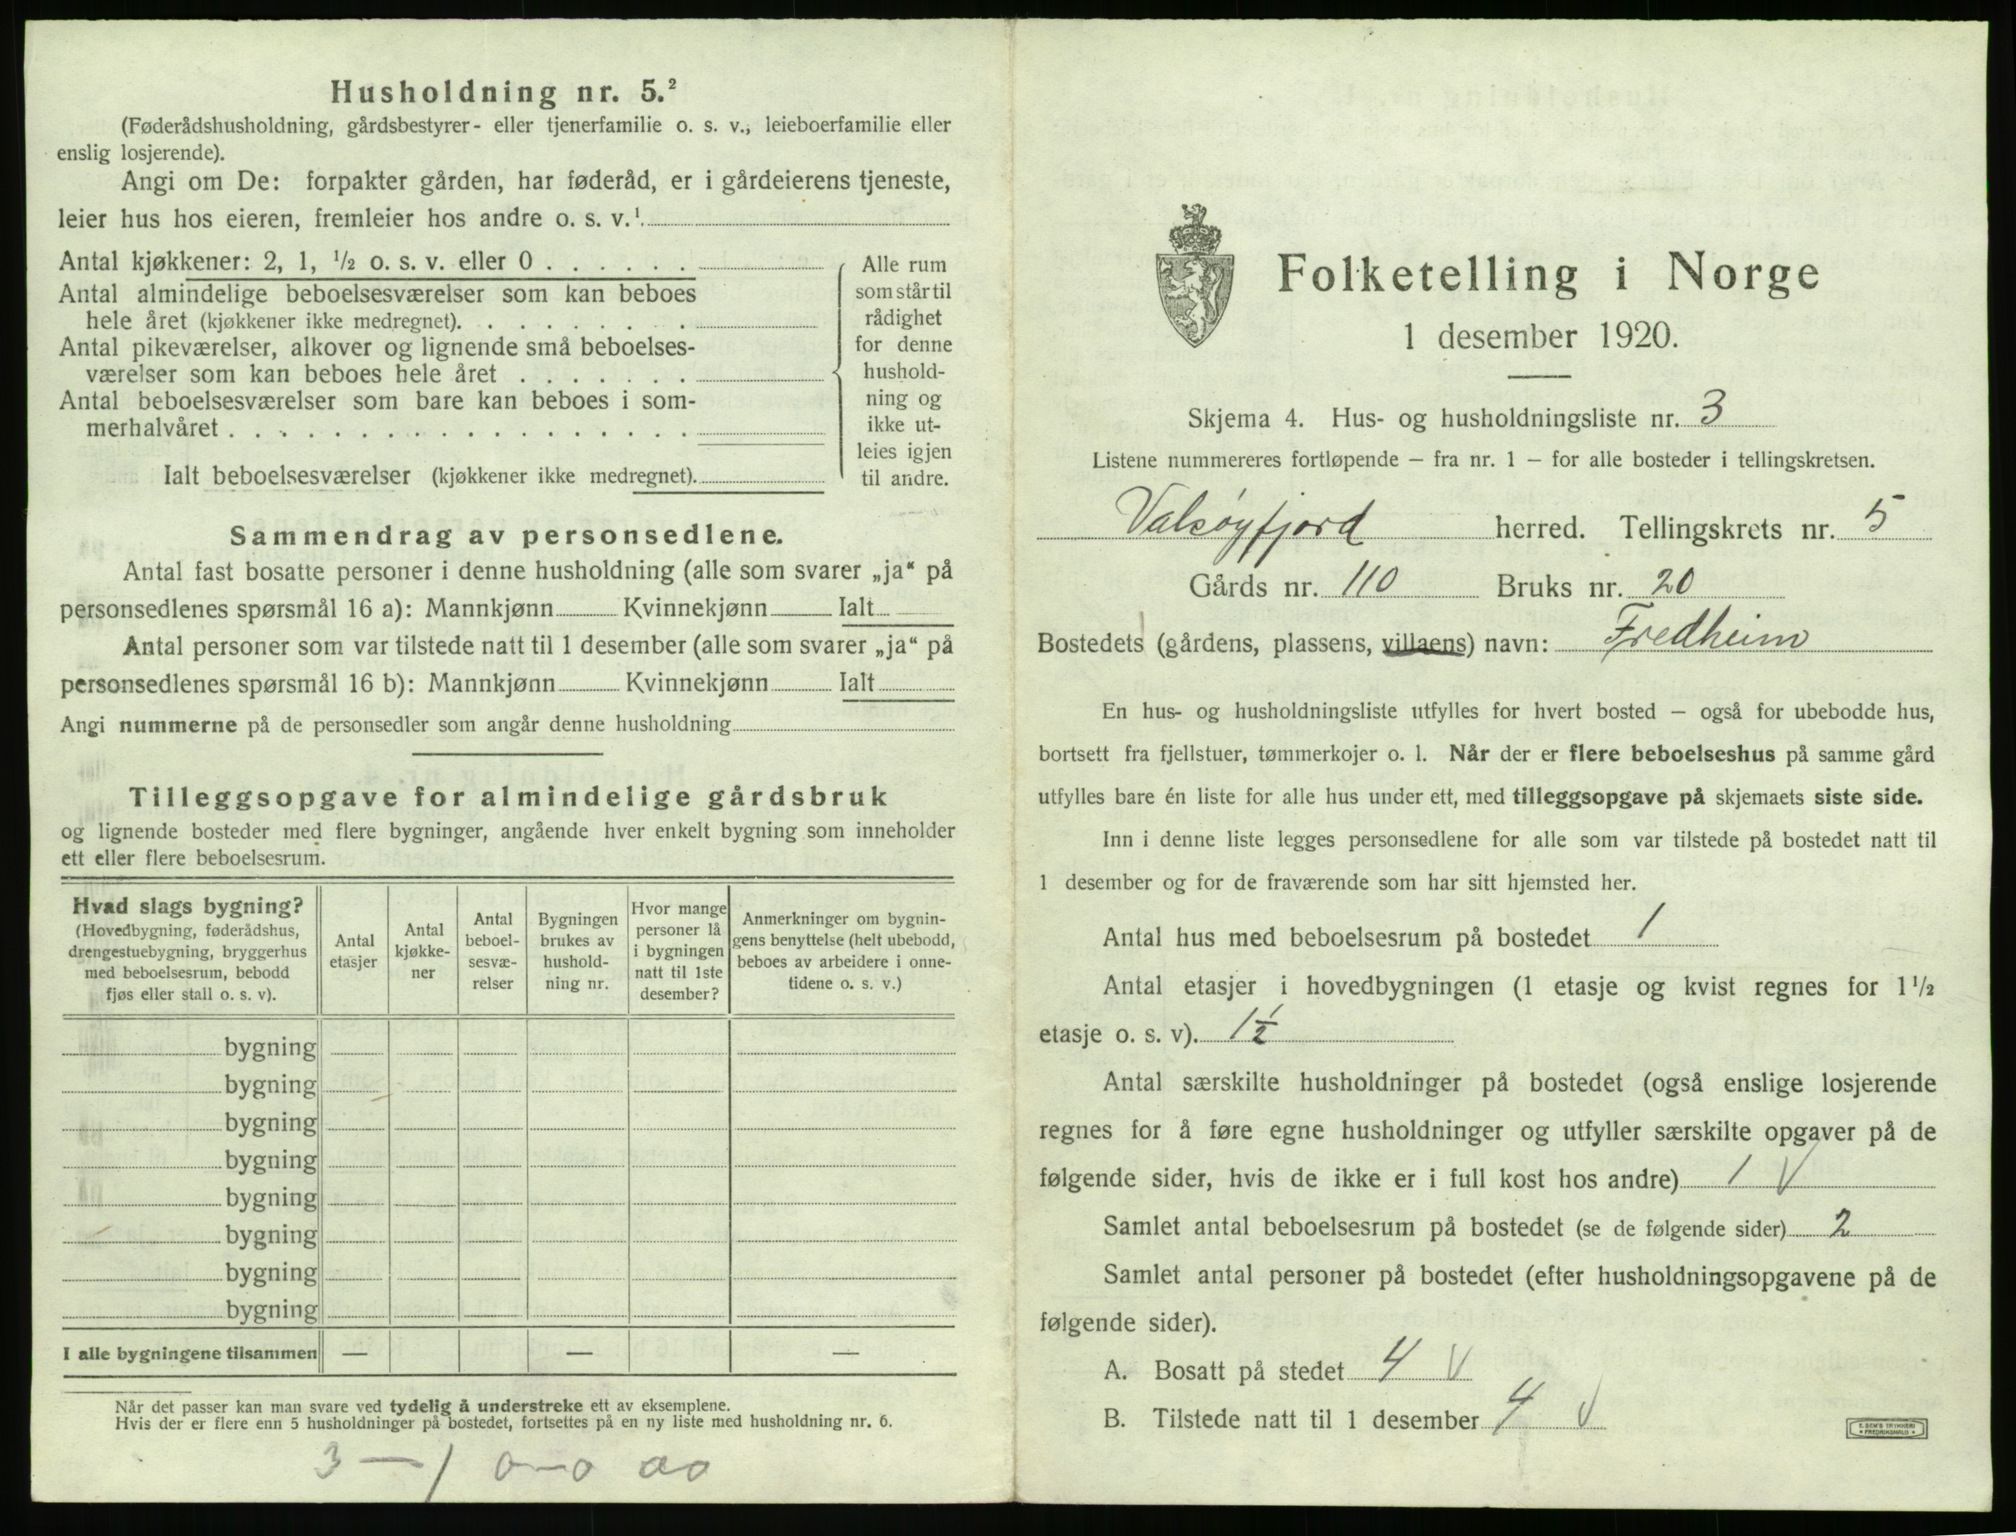 Husholdning nr. 5.²
(Føderådshusholdning, gårdsbestyrer- eller tjenerfamilie o. s. v., leieboerfamilie eller
enslig losjerende).
Angi om De: forpakter gården, har føderåd, er i gårdeierens tjeneste,
leier hus hos eieren, fremleier hos andre o. s. v.¹
Antal kjøkkener: 2, 1, ½ o. s. v. eller 0 . . . . . .
Antal almindelige beboelsesværelser som kan beboes
hele året (kjøkkener ikke medregnet). . . . . . . . .
Antal pikeværelser, alkover og lignende små beboelses-
værelser som kan beboes hele året . . . . . . .
Antal beboelsesværelser som bare kan beboes i som-
merhalvåret . . . . . . . . . . . . . . . . . .
Ialt beboelsesværelser (kjøkkener ikke medregnet).
Alle rum
som står til
rådighet
for denne
hushold-
ning og
ikke ut-
leies igjen
til andre.
Sammendrag av personsedlene.
Antal fast bosatte personer i denne husholdning (alle som svarer „ja“ på
personsedlenes spørsmål 16 a): Mannkjønn Kvinnekjønn Ialt
Antal personer som var tilstede natt til 1 desember (alle som svarer „ja“ på
personsedlenes spørsmål 16 b): Mannkjønn Kvinnekjønn Ialt
Angi nummerne på de personsedler som angår denne husholdning
Tilleggsopgave for almindelige gårdsbruk
og lignende bosteder med flere bygninger, angående hver enkelt bygning som inneholder
ett eller flere beboelsesrum.
Hvad slags bygning?
(Hovedbygning, føderådshus,
drengestuebygning, bryggerhus
med beboelsesrum, bebodd
fjøs eller stall o. s. v).
Antal
etasjer
Antal
kjøkke-
ner
Antal
beboel-
sesvæ-
relser
Bygningen
brukes av
hushold-
ning nr.
Hvor mange
personer lå
i bygningen
natt til 1ste
desember?
Anmerkninger om bygnin-
gens benyttelse (helt ubebodd,
beboes av arbeidere i onne-
tidene o. s. v.)
bygning
bygning
bygning
bygning
bygning
bygning
bygning
bygning
I alle bygningene tilsammen — — —
Når det passer kan man svare ved tydelig å understreke ett av eksemplene.
Hvis der er flere enn 5 husholdninger på bostedet, fortsettes på en ny liste med husholdning nr. 6.
3 — 1 0—0 00
Folketelling i Norge
1 desember 1920.
Skjema 4. Hus- og husholdningsliste nr. 3
Listene nummereres fortløpende — fra nr. 1 — for alle bosteder i tellingskretsen.
Valsøyfjord herred. Tellingskrets nr. 5
Gårds nr. 110 Bruks nr. 20
Bostedets (gårdens, plassens, villaens) navn: Fredheim
En hus- og husholdningsliste utfylles for hvert bosted — også for ubebodde hus,
bortsett fra fjellstuer, tømmerkojer o. l. Når der er flere beboelseshus på samme gård
utfylles bare én liste for alle hus under ett, med tilleggsopgave på skjemaets siste side.
Inn i denne liste legges personsedlene for alle som var tilstede på bostedet natt til
1 desember og for de fraværende som har sitt hjemsted her.
Antal hus med beboelsesrum på bostedet 1
Antal etasjer i hovedbygningen (1 etasje og kvist regnes for 1½
etasje o. s. v). 1½
Antal særskilte husholdninger på bostedet (også enslige losjerende
regnes for å føre egne husholdninger og utfyller særskilte opgaver på de
følgende sider, hvis de ikke er i full kost hos andre) 1 V
Samlet antal beboelsesrum på bostedet (se de følgende sider) 2
Samlet antal personer på bostedet (efter husholdningsopgavene på de
følgende sider).
A. Bosatt på stedet 4 V
B. Tilstede natt til 1 desember 4 V
E. SEM'S TRYKKERI
• FREDRIKSHALD •